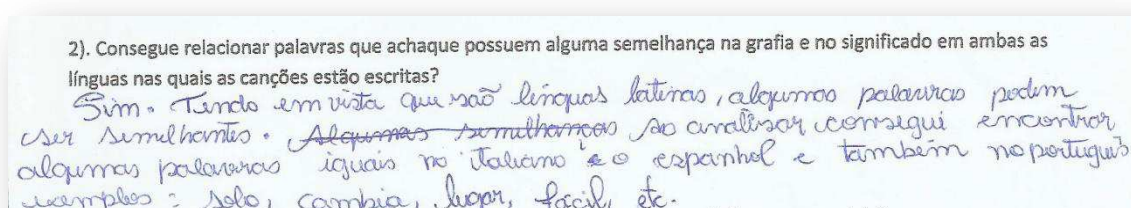 2). Consegue relacionar palavras que achaque possuem alguma semelhança na grafia e no significado em ambas as
línguas nas quais as canções estão escritas?
Sim. Tendo em vista que são línguas latinas, algumas palavras podem
ser semelhantes. Algumas semelhanças Ao analisar consegui encontrar
algumas palavras iguais no italiano e o espanhol e também no português
exemplos: solo, cambia, lugar, fácil, etc.